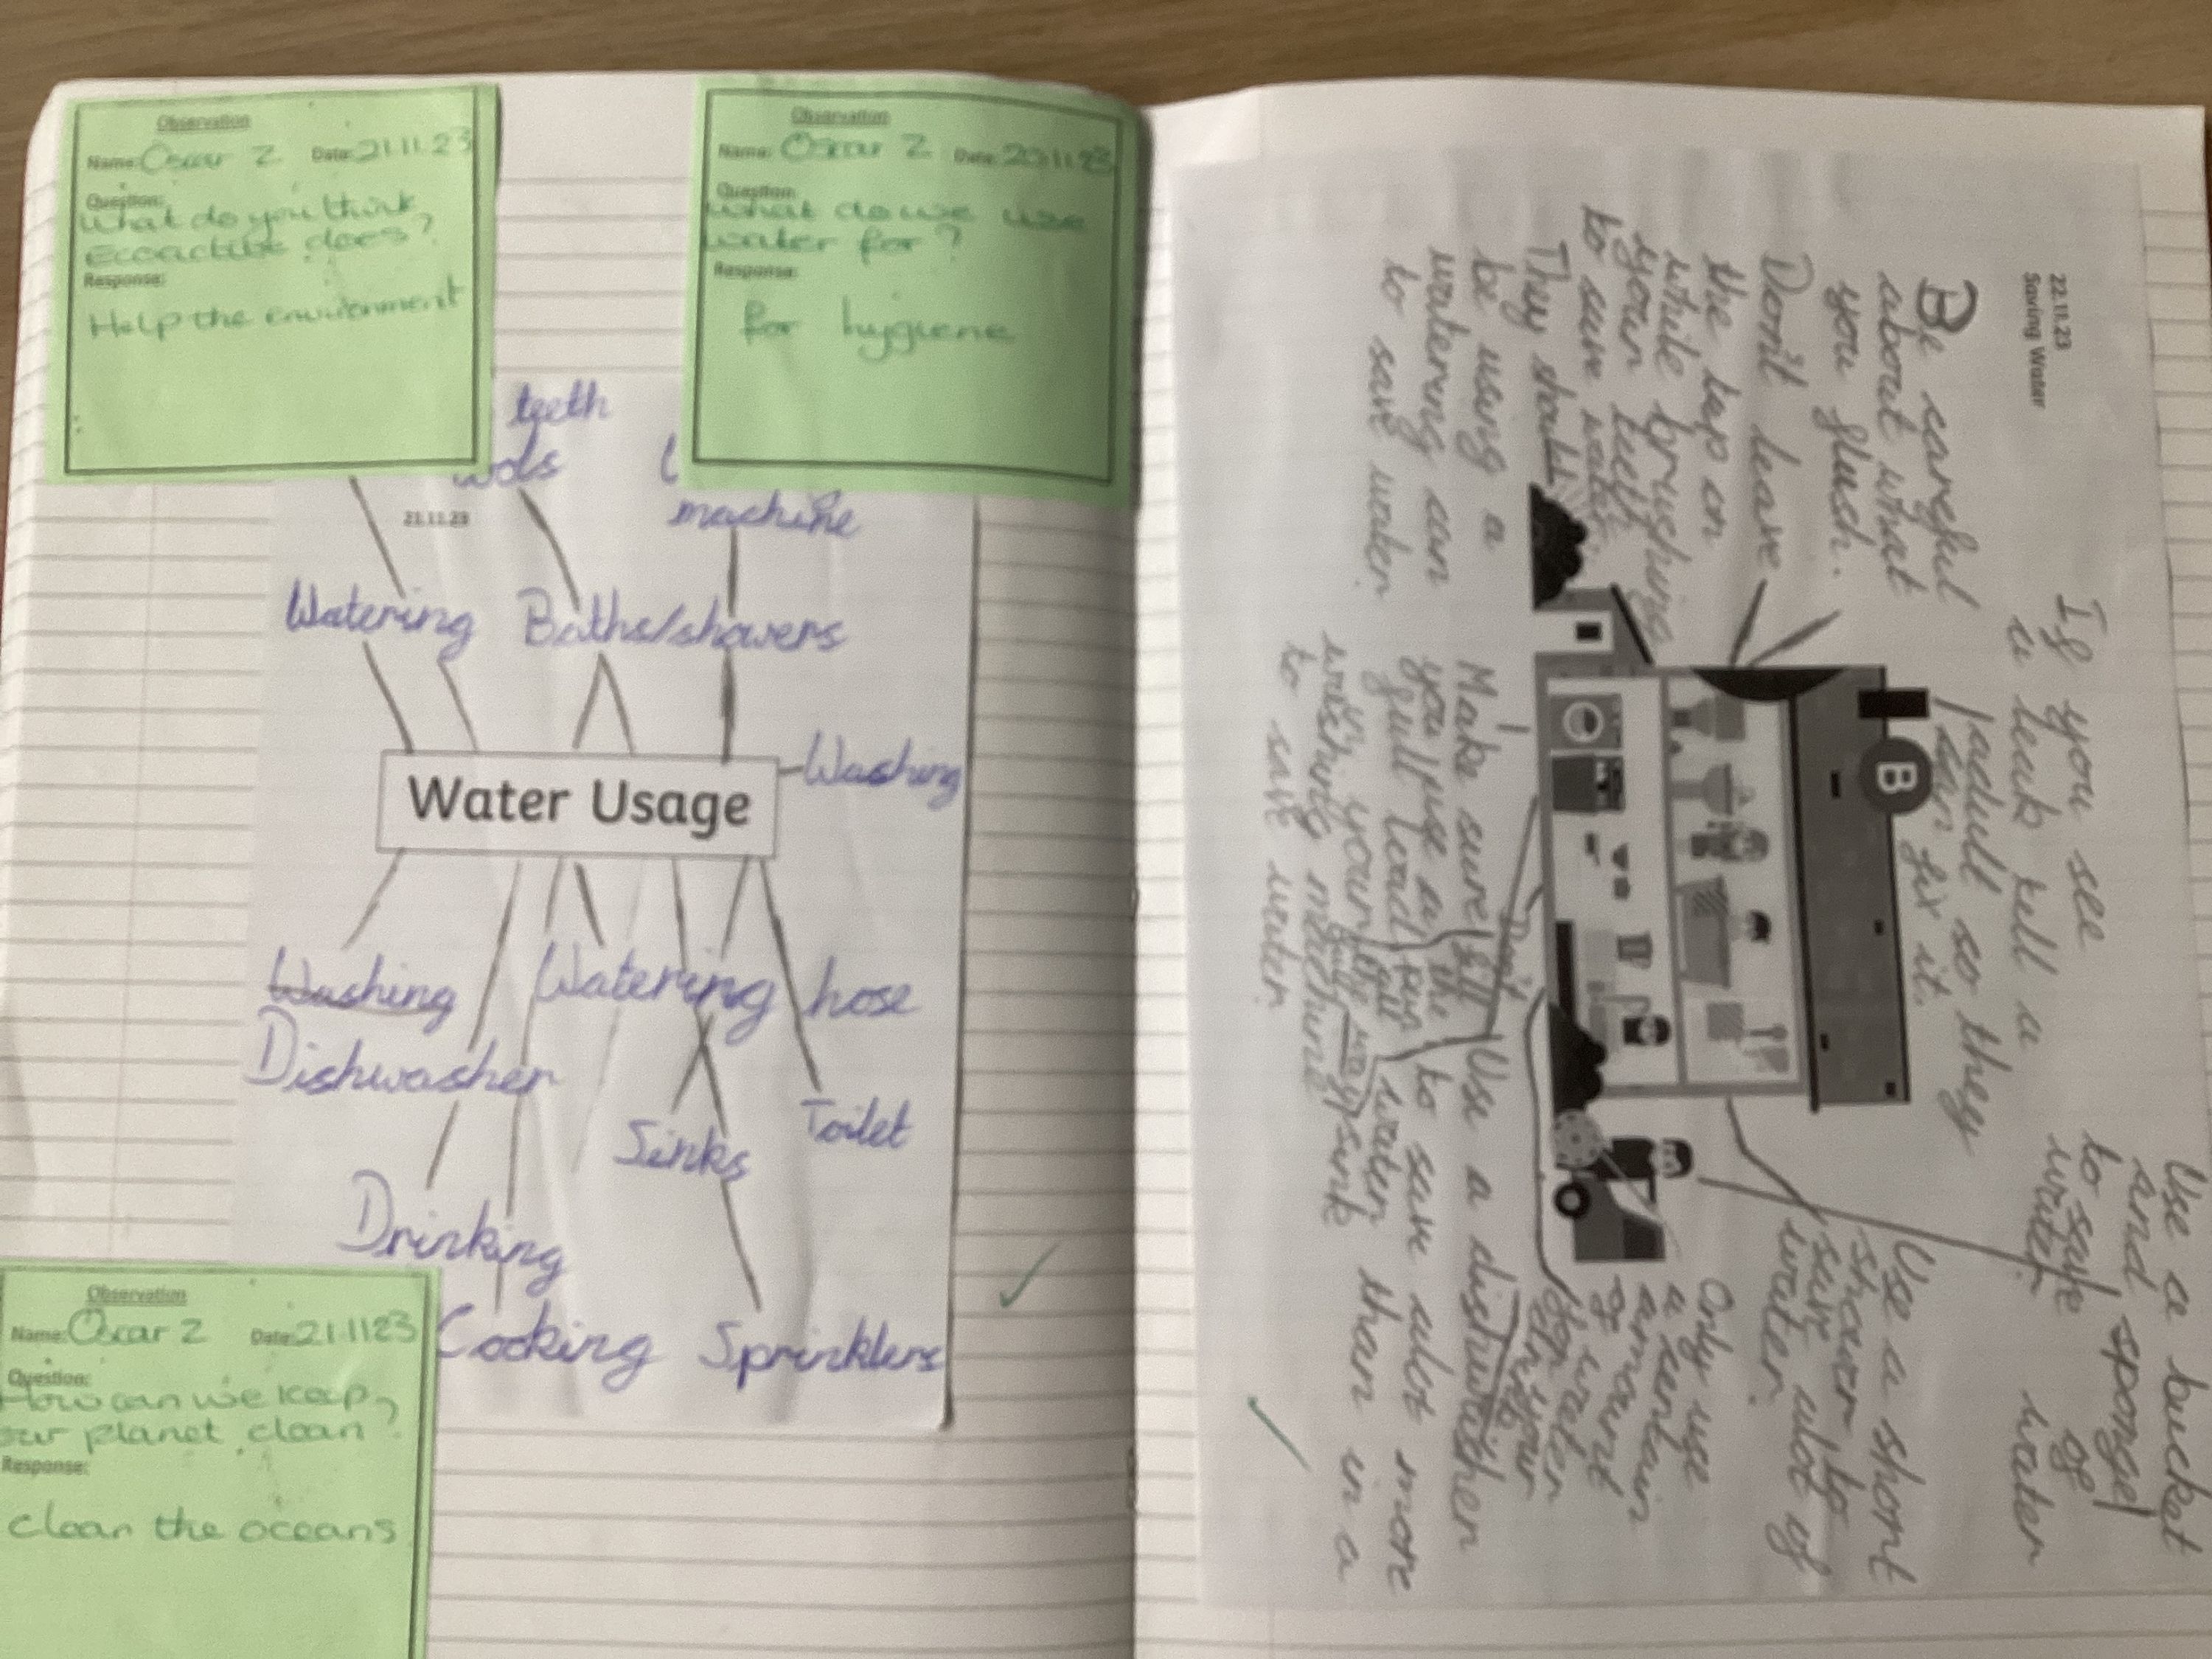 Observation
Name: Oscar Z Date: 21.11.23
Question:
What do you think
Ecoactive does?
Response:
Help the environment
Observation
Name: Oscar Z Date:
Question:
What do we use
water for?
Response:
for hygiene
teeth
machine
21.11.23
Watering Baths/showers
Washing
Water Usage
Washing Watering hose
Dishwasher
Sinks Toilet
Drinking
Cooking Sprinklers
Observation
Name: Oscar Z Date: 21.11 23
Question:
How can we keep
our planet clean?
Response:
clean the oceans
22.11.23
Saving Water
Be careful
about what
you flush.
Don't leave
the tap on
while brushing
your teeth
to save water.
They should
be using a
watering can
to save water.
If you see
a leak tell a
adult so they
can fix it.
B
Make sure
you put a
full load
in your
washing machine
to save water.
Use a bucket
and sponge
to save of
water. water
Use a short
shower to
save alot of
water.
Only use
a certain
amount
of water
for your
Use a dishwasher
to save alot more
water than in a
sink